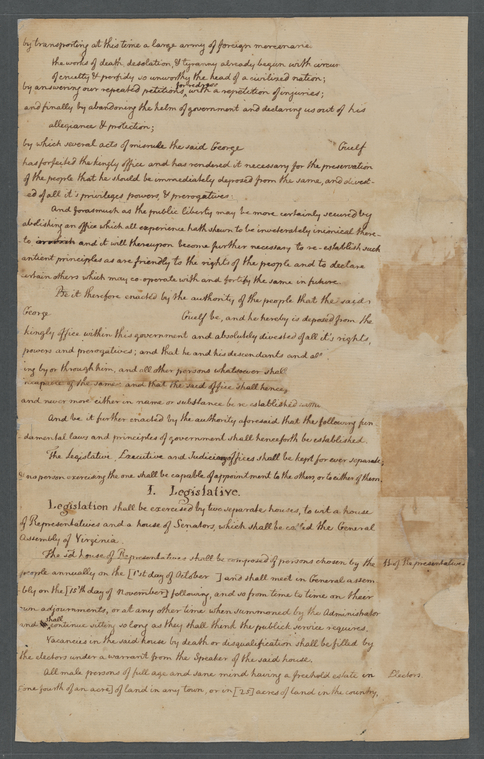 by transporting at this time a large army of foreign mercenarie
the works of death, desolation, & tyranny already begun with circum
of cruelty & perfidy so unworthy the head of a civilized nation;
by answering our repeated petitions for redress with a repetition of injuries;
and finally by abandoning the helm of government and declaring us out of his
allegiance & protection;
by which several acts of misrule the said George Guelf
has forfeited the kingly office and has rendered it necessary for the preservation
of the people that he should be immediately deposed from the same, and divest-
-ed of all it's privileges powers, & prerogatives:
And forasmuch as the public liberty may be more certainly secured by
abolishing an office which all experience hath shewn to be inveterately inimical there-
to and it will thereupon become further necessary to re-establish such
antient principles as are friendly to the rights of the people and to declare
certain others which may co-operate with and fortify the same in future.
Be it therefore enacted by the authority of the people that the said
George Guelf be, and he hereby is deposed from the
kingly office within this government and absolutely divested of all it's rights,
powers and prerogatives; and that he and his descendants and all
ing by or through him, and all other persons whatsoever shall
incapable of the same: and that the said office shall hence
and never more either in name or substance be re-established within
And be it further enacted by the authority aforesaid that the following fun
damental laws and principles of government shall henceforth be established.
The Legislative, Executive and Judiciary offices shall be kept for ever separate;
& no person exercising the one shall be capable of appointment to the others, or to either of them.
I. Legislative.
Legislation shall be exercised by two separate houses, to wit a house
of Representatives and a house of Senators, which shall be called the General
Assembly of Virginia.
The sd house of Representatives shall be composed of persons chosen by the
H. of Representatives
people annually on the [1st day of October ] and shall meet in General assem
bly on the [15th day of November] following, and so from time to time on their
own adjournments, or at any other time when summoned by the Administrator
and shall continue sitting so long as they shall think the publick service requires.
Vacancies in the said house by death or disqualification shall be filled by
the electors under a warrant from the Speaker of the said house.
All male persons of full age and sane mind having a freehold estate in
Electors
[one fourth of an acre] of land in any town, or in [25] acres of land in the country,